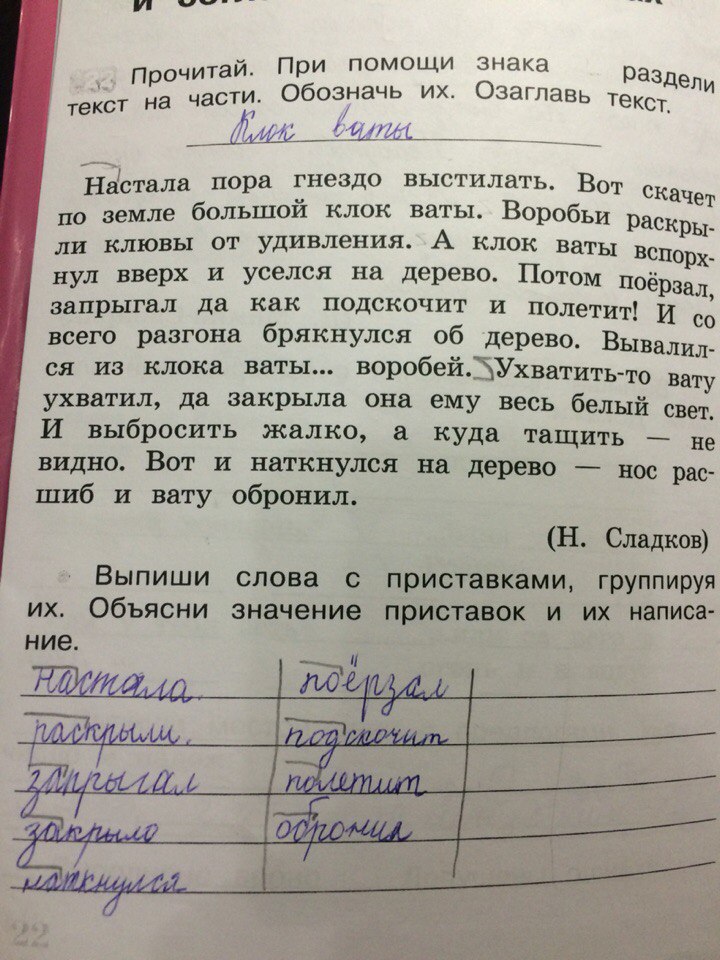 33 Прочитай. При помощи знака раздели
текст на части. Обозначь их. Озаглавь текст.
Клок ваты
Настала пора гнездо выстилать. Вот скачет
по земле большой клок ваты. Воробьи раскры-
ли клювы от удивления. А клок ваты вспорх-
нул вверх и уселся на дерево. Потом поёрзал,
запрыгал да как подскочит и полетит! И со
всего разгона брякнулся об дерево. Вывалил-
ся из клока ваты... воробей. Ухватить-то вату
ухватил, да закрыла она ему весь белый свет.
И выбросить жалко, а куда тащить — не
видно. Вот и наткнулся на дерево — нос рас-
шиб и вату обронил.
(Н. Сладков)
Выпиши слова с приставками, группируя
их. Объясни значение приставок и их написа-
ние.
настала. поёрзал
раскрыли. подскочит
запрыгал полетит
закрыло обронил
наткнулся
22